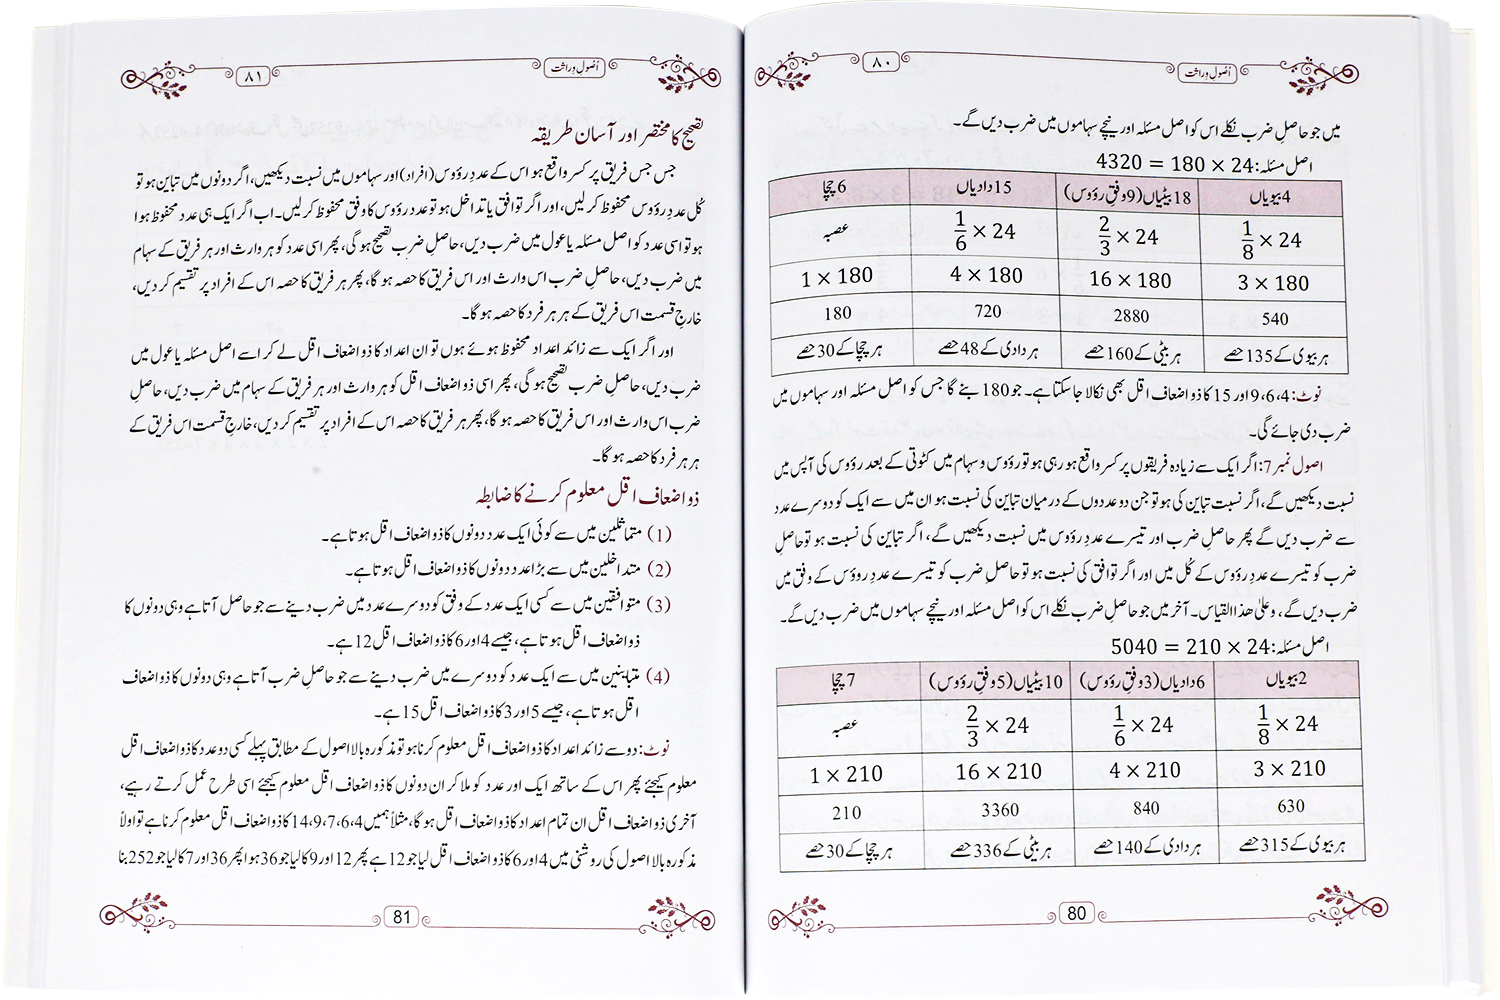 اُصولِ وراثت
۸۰
میں جو حاصلِ ضرب نکلے اس کو اصل مسئلہ اور نیچے سہاموں میں ضرب دیں گے۔
اصل مسئلہ: 24 × 180 = 4320
4 بیویاں | 18 بیٹیاں (9 وفقِ رؤوس) | 15 دادیاں | 6 چچا
1/8 × 24 | 2/3 × 24 | 1/6 × 24 | عصبہ
3 × 180 | 16 × 180 | 4 × 180 | 1 × 180
540 | 2880 | 720 | 180
ہر بیوی کے 135 حصے | ہر بیٹی کے 160 حصے | ہر دادی کے 48 حصے | ہر چچا کے 30 حصے
نوٹ: 4، 6، 9 اور 15 کا ذواضعاف اقل بھی نکالا جا سکتا ہے۔ جو 180 بنے گا جس کو اصل مسئلہ اور سہاموں میں
ضرب دی جائے گی۔
اصول نمبر 7: اگر ایک سے زیادہ فریقوں پر کسر واقع ہو رہی ہو تو رؤوس و سہام میں کٹوتی کے بعد رؤوس کی آپس میں
نسبت دیکھیں گے، اگر نسبت تباین کی ہو تو جن دو عددوں کے درمیان تباین کی نسبت ہو ان میں سے ایک کو دوسرے عدد
سے ضرب دیں گے پھر حاصلِ ضرب اور تیسرے عددِ رؤوس میں نسبت دیکھیں گے، اگر تباین کی نسبت ہو تو حاصلِ
ضرب کو تیسرے عددِ رؤوس کے کُل میں اور اگر توافق کی نسبت ہو تو حاصلِ ضرب کو تیسرے عددِ رؤوس کے وفق میں
ضرب دیں گے، وعلیٰ ھذا القیاس۔ آخر میں جو حاصلِ ضرب نکلے گا اس کو اصل مسئلہ اور نیچے سہاموں میں ضرب دیں گے۔
اصل مسئلہ: 24 × 210 = 5040
2 بیویاں | 6 دادیاں (3 وفقِ رؤوس) | 10 بیٹیاں (5 وفقِ رؤوس) | 7 چچا
1/8 × 24 | 1/6 × 24 | 2/3 × 24 | عصبہ
3 × 210 | 4 × 210 | 16 × 210 | 1 × 210
630 | 840 | 3360 | 210
ہر بیوی کے 315 حصے | ہر دادی کے 140 حصے | ہر بیٹی کے 336 حصے | ہر چچا کے 30 حصے
80
اُصولِ وراثت
۸۱
تصحیح کا مختصر اور آسان طریقہ
جس جس فریق پر کسر واقع ہو اس کے عددِ رؤوس (افراد) اور سہاموں میں نسبت دیکھیں، اگر دونوں میں تباین ہو تو
کُل عددِ رؤوس محفوظ کر لیں، اور اگر توافق یا تداخل ہو تو عددِ رؤوس کا وفق محفوظ کر لیں۔ اب اگر ایک ہی عدد محفوظ ہوا
ہو تو اسی عدد کو اصل مسئلہ یا عول میں ضرب دیں، حاصلِ ضرب تصحیح ہو گی، پھر اسی عدد کو ہر وارث اور ہر فریق کے سہام
میں ضرب دیں، حاصلِ ضرب اس وارث اور اس فریق کا حصہ ہو گا، پھر ہر فریق کا حصہ اس کے افراد پر تقسیم کر دیں،
خارجِ قسمت اس فریق کے ہر ہر فرد کا حصہ ہو گا۔
اور اگر ایک سے زائد اعداد محفوظ ہوئے ہوں تو ان اعداد کا ذواضعاف اقل لے کر اسے اصل مسئلہ یا عول میں
ضرب دیں، حاصلِ ضرب تصحیح ہو گی، پھر اسی ذواضعاف اقل کو ہر وارث اور ہر فریق کے سہام میں ضرب دیں، حاصلِ
ضرب اس وارث اور اس فریق کا حصہ ہو گا، پھر ہر فریق کا حصہ اس کے افراد پر تقسیم کر دیں، خارجِ قسمت اس فریق کے
ہر ہر فرد کا حصہ ہو گا۔
ذواضعاف اقل معلوم کرنے کا ضابطہ
(1) متماثلین میں سے کوئی ایک عدد دونوں کا ذواضعاف اقل ہوتا ہے۔
(2) متداخلین میں سے بڑا عدد دونوں کا ذواضعاف اقل ہوتا ہے۔
(3) متوافقین میں سے کسی ایک عدد کے وفق کو دوسرے عدد میں ضرب دینے سے جو حاصل آتا ہے وہی دونوں کا
ذواضعاف اقل ہوتا ہے، جیسے 4 اور 6 کا ذواضعاف اقل 12 ہے۔
(4) متباینین میں سے ایک عدد کو دوسرے میں ضرب دینے سے جو حاصلِ ضرب آتا ہے وہی دونوں کا ذواضعاف
اقل ہوتا ہے، جیسے 5 اور 3 کا ذواضعاف اقل 15 ہے۔
نوٹ: دو سے زائد اعداد کا ذواضعاف اقل معلوم کرنا ہو تو مذکورہ بالا اصول کے مطابق پہلے کسی دو عدد کا ذواضعاف اقل
معلوم کیجئے پھر اس کے ساتھ ایک اور عدد کو ملا کر ان دونوں کا ذواضعاف اقل معلوم کیجئے اسی طرح عمل کرتے رہیے،
آخری ذواضعاف اقل ان تمام اعداد کا ذواضعاف اقل ہو گا، مثلاً ہمیں 4، 6، 7، 9، 14 کا ذواضعاف اقل معلوم کرنا ہے تو اولاً
مذکورہ بالا اصول کی روشنی میں 4 اور 6 کا ذواضعاف اقل لیا جو 12 ہے پھر 12 اور 9 کا لیا جو 36 ہوا پھر 36 اور 7 کا لیا جو 252 بنا
81